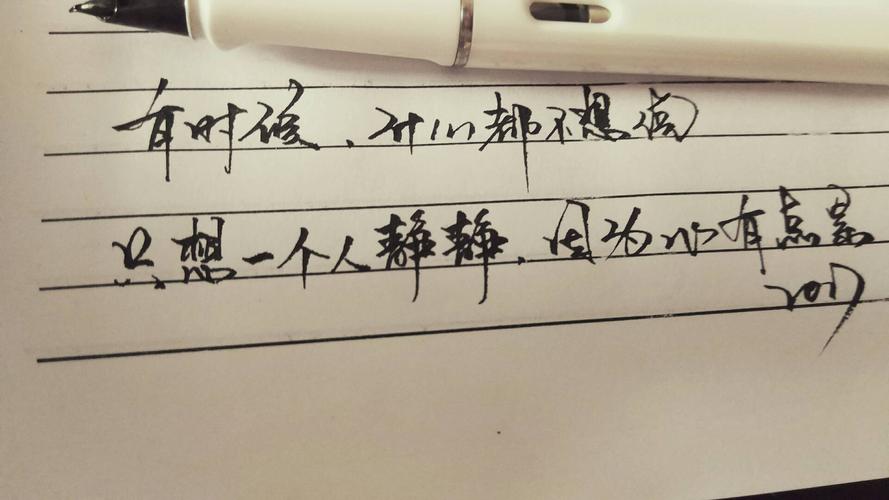 有时候、都不想
只想一个人静静,因为心有点累
2017